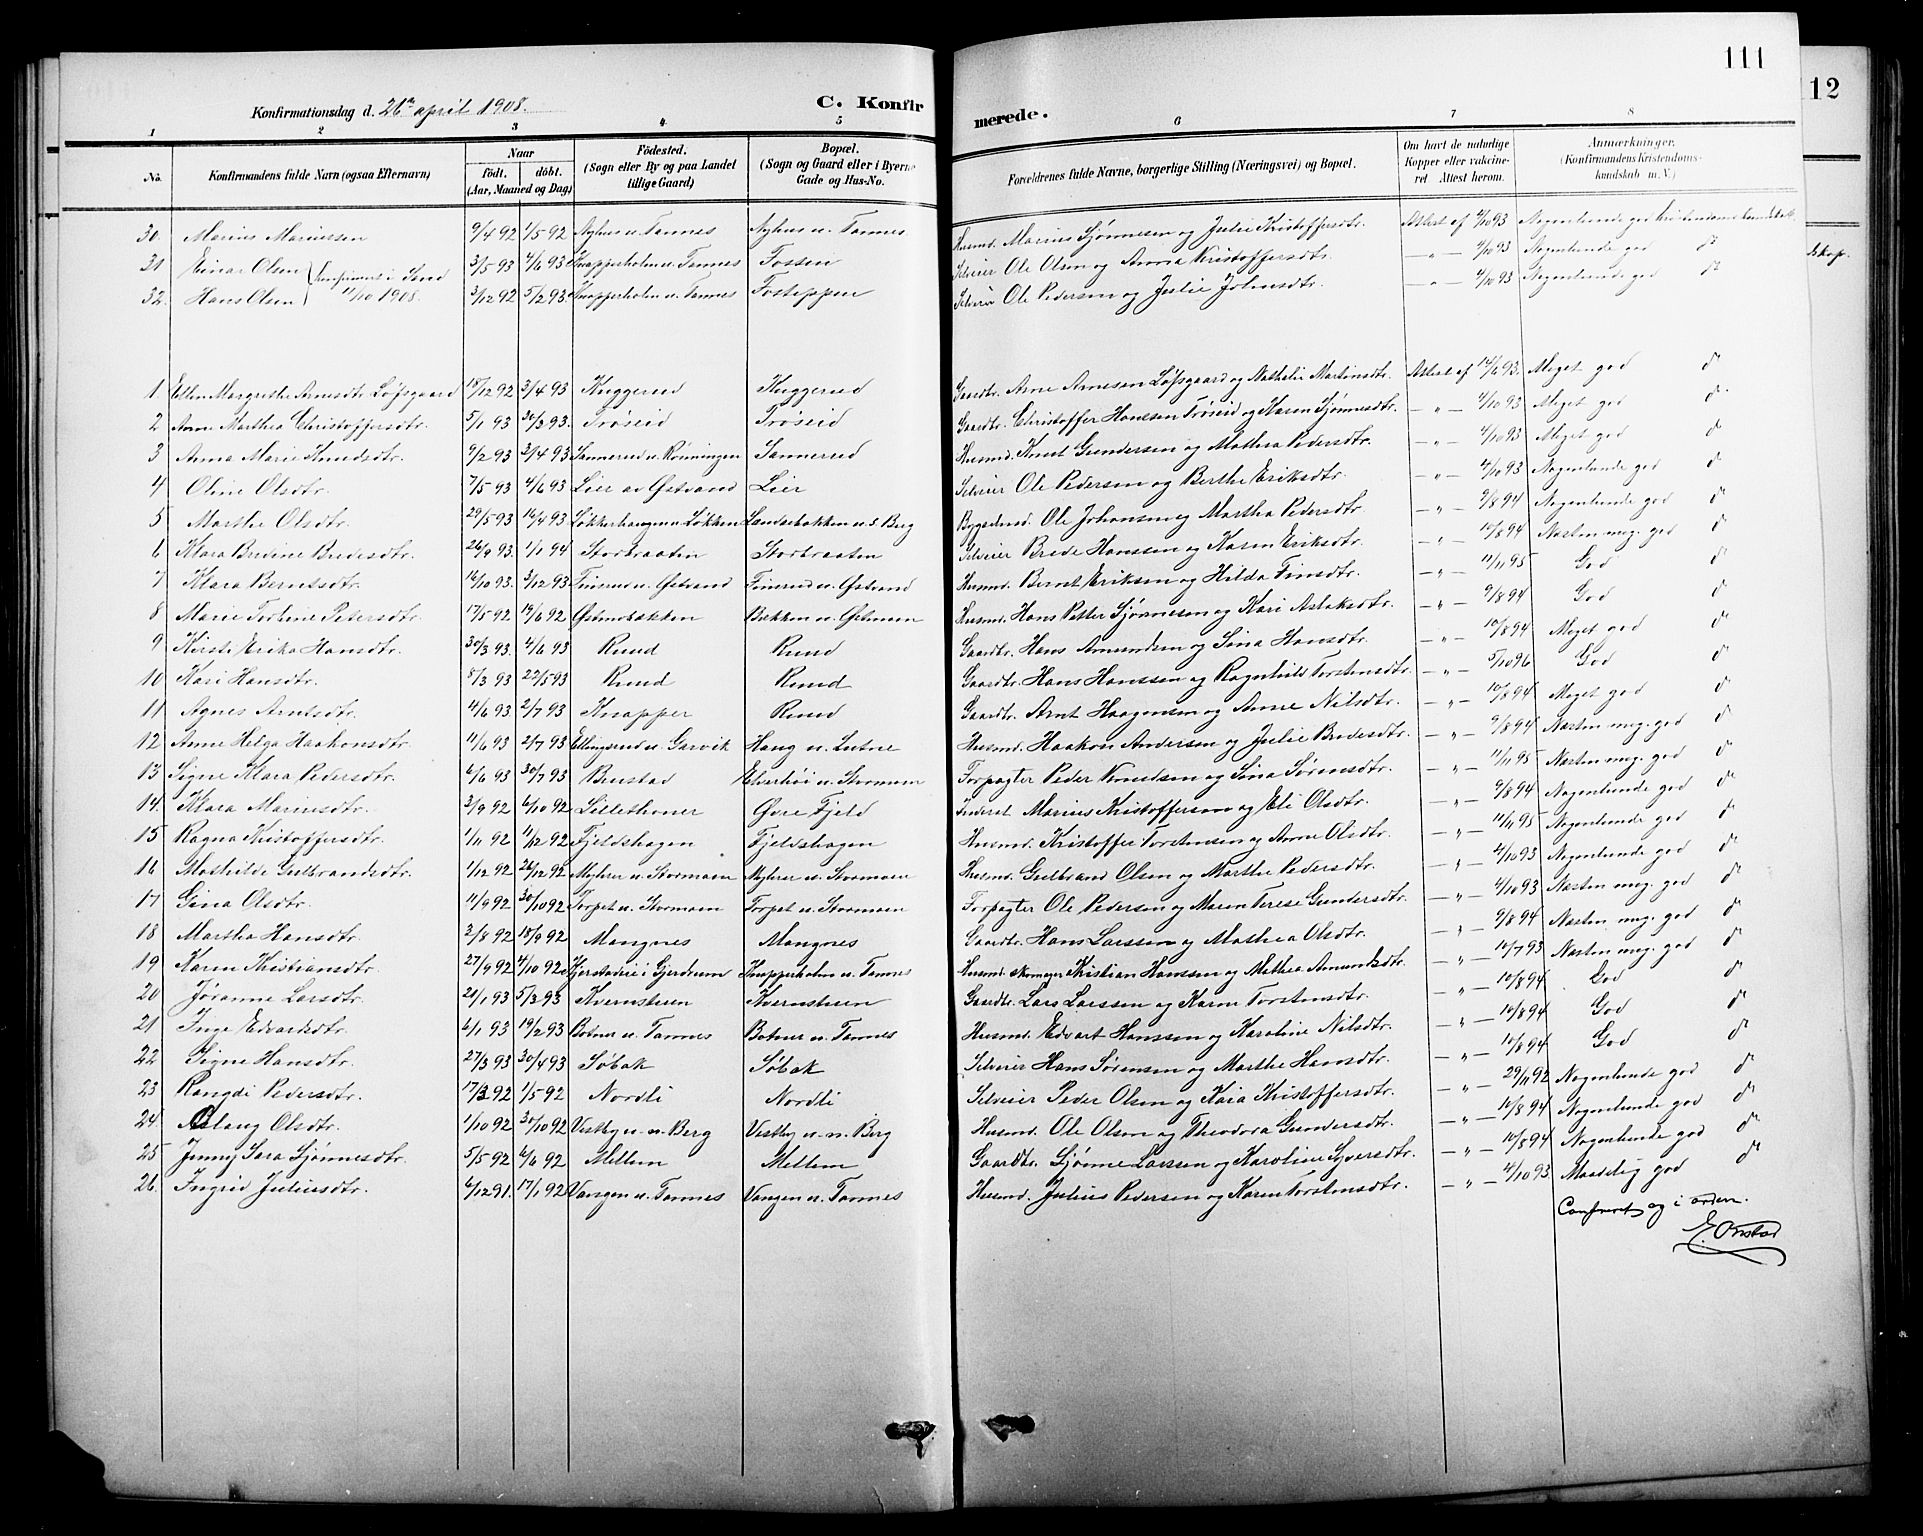 111
12
Konfirmationsdag d. 26de april 1908.
C. Konfirmerede.
1 2 3 4 5 6 7 8
No. Konfirmandens fulde Navn (ogsaa Efternavn) Naar födt. döbt. (Aar, Maaned og Dag) Födested. (Sogn eller By og paa Landet tillige Gaard) Bopæl. (Sogn og Gaard eller i Byerne Gade og Hus-No. Forældrenes fulde Navne, borgerlige Stilling (Næringsvei) og Bopæl. Om havt de naturlige Kopper eller vakcineret Attest herom. Anmærkninger. (Konfirmandens Kristendomskundskab m. V.)
30. Marius Mariussen 9/4 92 1/5 92 Nyhus u. Tannes Nyhus u. Tannes Husmd. Marius Sjønnesen og Julie Kristoffersdtr. Attest af 4/10 93 Nogenlunde god kristendomskundskab
31 Einar Olsen 3/5 93 4/6 93 Knapperholm u. Tannes Fossen Selveier Ole Olsen og Anna Kristoffersdtr. — " — 4/10 93 Nogenlunde god do
32. Hans Olsen 3/12 92 5/2 93 Knapperholm u. Tannes Fosteppen Selveier Ole Pedersen og Julie Johnsdtr. — " — 4/10 93 Nogenlunde god do
konfirmert i Sand 11/10 1908.
1 Ellen Margrethe Arnesdtr Løfsgaard 18/12 92 3/4 93 Kuggerud Kuggerud Gaardbr. Arne Arnesen Løfsgaard og Mathilde Martinsdtr. Attest af 14/6 93. Meget god do
2 Anne Marthea Christoffersdtr. 5/1 93 26/3 93. Trøseid Trøseid Gaardbr. Christoffer Hanssen Trøseid og Karen Sjønnesdtr. — " — 4/10 93 Meget god do
3 Anna Marie Knudsdtr. 9/2 93 2/4 93 Sannerud u. Rønningen Sannerud Husmd. Knut Gundersen og Mathea Pedersdtr. — " — 4/10 93 Meget god do
4 Oline Olsdtr. 7/5 93 4/6 93 Lier av Østvand Lier Selveier Ole Pedersen og Berthe Eriksdtr. — " — 4/10 93 Nogenlunde god do
5 Marthe Olsdtr. 29/5 93 16/4 93 Løkkerhaugen u Løkken Sandsbakken u. S. Berg Bygselmd. Ole Johansen og Martha Pedersdtr. — " — 9/8 94 Nogenlunde god do
6 Klara Bredine Bredesdtr. 26/9 93. 1/1 94 Storbraaten Storbraaten Selveier Brede Hanssen og Karen Eriksdtr. — " — 10/8 94 Næsten meg. god do
7 Klara Berntsdtr. 16/10 93. 3/12 93 Finsrud u. Østvand Finsrud u. Østvand Husmd. Bernt Eriksen og Hilda Finsdtr. — " — 11/11 95 God do
8 Marie Torline Petersdtr. 17/5 92 19/6 92 Østmobakken Bakken u. Østmoen Husmd. Hans Petter Sjønnesen og Kari Aslaksdtr. — " — 9/8 94 God do
9 Kirsti Erika Hansdtr. 30/3 93. 4/6 93 Ruud Ruud Gaardbr. Hans Amundsen og Sina Hansdtr. — " — 10/8 94 Meget god do
10 Kari Hansdtr. 8/3 93 22/5 93 Ruud Ruud Gaardbr. Hans Hanssen og Ragnhild Torstensdtr. — " — 5/10 96 God do
11 Agnes Arntsdtr. 4/6 93 2/7 93 Knapper Ruud Gaardbr. Arnt Haagensen og Anne Nilsdtr. — " — 10/8 94 Meget god do
12 Anne Helga Haakonsdtr. 11/6 93 2/7 93 Ellingsrud u. Garvik Haug u. Lutne Husmd. Haakon Andersen og Julie Bredesdtr. — " — 9/8 94 Næsten meg. god do
13 Signe Klara Pedersdtr. 6/6 93 30/7 93 Brustad Elverhøi u. Stormoen Forpagter Peder Knudsen og Sina Sørensdtr. — " — 11/11 95 Næsten meg. god do
14. Klara Mariusdtr. 2/9 92 6/10 92 Lillethoner Øvre Fjeld Inderst Marius Kristoffersen og Eli Olsdtr. — " — 9/8 94 Nogenlunde god do
15 Ragna Kristoffersdtr. 1/11 92 11/12 92 Fjeldshagen Fjeldshagen Husmd. Kristoffer Torstensen og Anne Olsdtr. — " — 11/11 95 Nogenlunde god do
16 Mathilde Gulbrandsdtr. 1/12 92 26/12 92 Myhrer u. Stormoen Myhrer u. Stormoen Husmd. Gulbrand Olsen og Marthe Pedersdtr. — " — 4/10 93 Nogenlunde god do
17 Gina Olsdtr. 11/9 92 30/10 92 Torpet u. Stormoen Torpet u. Stormoen Forpagter Ole Pedersen og Maren Terese Gundersdtr. — " — 4/10 93 Næsten meg. god do
18 Martha Hansdtr. 2/8 92 18/9 92 Mangnes Mangnes Gaardbr. Hans Larssen og Mathea Olsdtr. — " — 9/8 94 Næsten meg. god do
19 Karen Kristiansdtr. 27/9 92 4/10 92 Kjerstadeie i Gjerdrum Knapperholm u. Tannes Husmd. skomager Kristian Hanssen og Mathea Amundsdtr. — " — 10/7 93 Næsten meg. god do
20 Jøranne Larsdtr. 20/1 93 5/3 93 Kvernstuen Kvernstuen Gaardbr. Lars Larssen og Karen Torstensdtr. — " — 10/8 94 God do
21 Inga Edvardsdtr. 6/1 93 19/2 93 Botner u. Tannes Botner u. Tannes Husmd. Edvart Hanssen og Karoline Nilsdtr. — " — 10/8 94 God do
22 Signe Hansdtr. 27/3 93 30/4 93 Søbak Søbak Selveier Hans Sørensen og Marthe Hansdtr. — " — 10/8 94 God do
23 Rangdi Pedersdtr. 17/3 92 1/5 92 Nordli Nordli Selveier Peder Olsen og Kaia Kristoffersdtr. — " — 29/11 92 Nogenlunde god do
24. Aslaug Olsdtr. 1/10 92 30/10 92 Vestby u. n. Berg Vestby u. n. Berg Husmd. Ole Olsen og Theodora Gundersdtr. — " — 10/8 94 Nogenlunde god do
25 Jenny Sara Sjønnesdtr. 5/5 92 6/6 92 Mellem Mellem Gaardbr. Sjønne Larssen og Karoline Syversdtr. — " — 10/8 94 Nogenlunde god do
26. Ingrid Juliusdtr. 6/12 91. 17/1 92 Vangen u. Tannes Vangen u. Tannes Husmd. Julius Pedersen og Karen Torstensdtr. — " — 4/10 93 Maadelig god do
Confereret og i orden.
E. Onstad